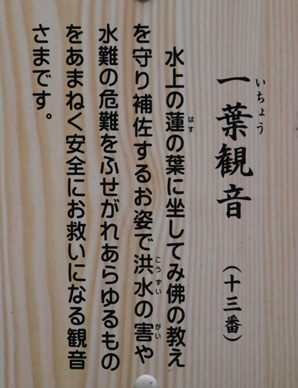 一葉観音（十三番）
いちょう
水上の蓮の葉に坐してみ佛の教え
はす
を守り補佐するお姿で洪水の害や
こうずい がい
水難の危難をふせがれあらゆるもの
をあまねく安全にお救いになる観音
さまです。